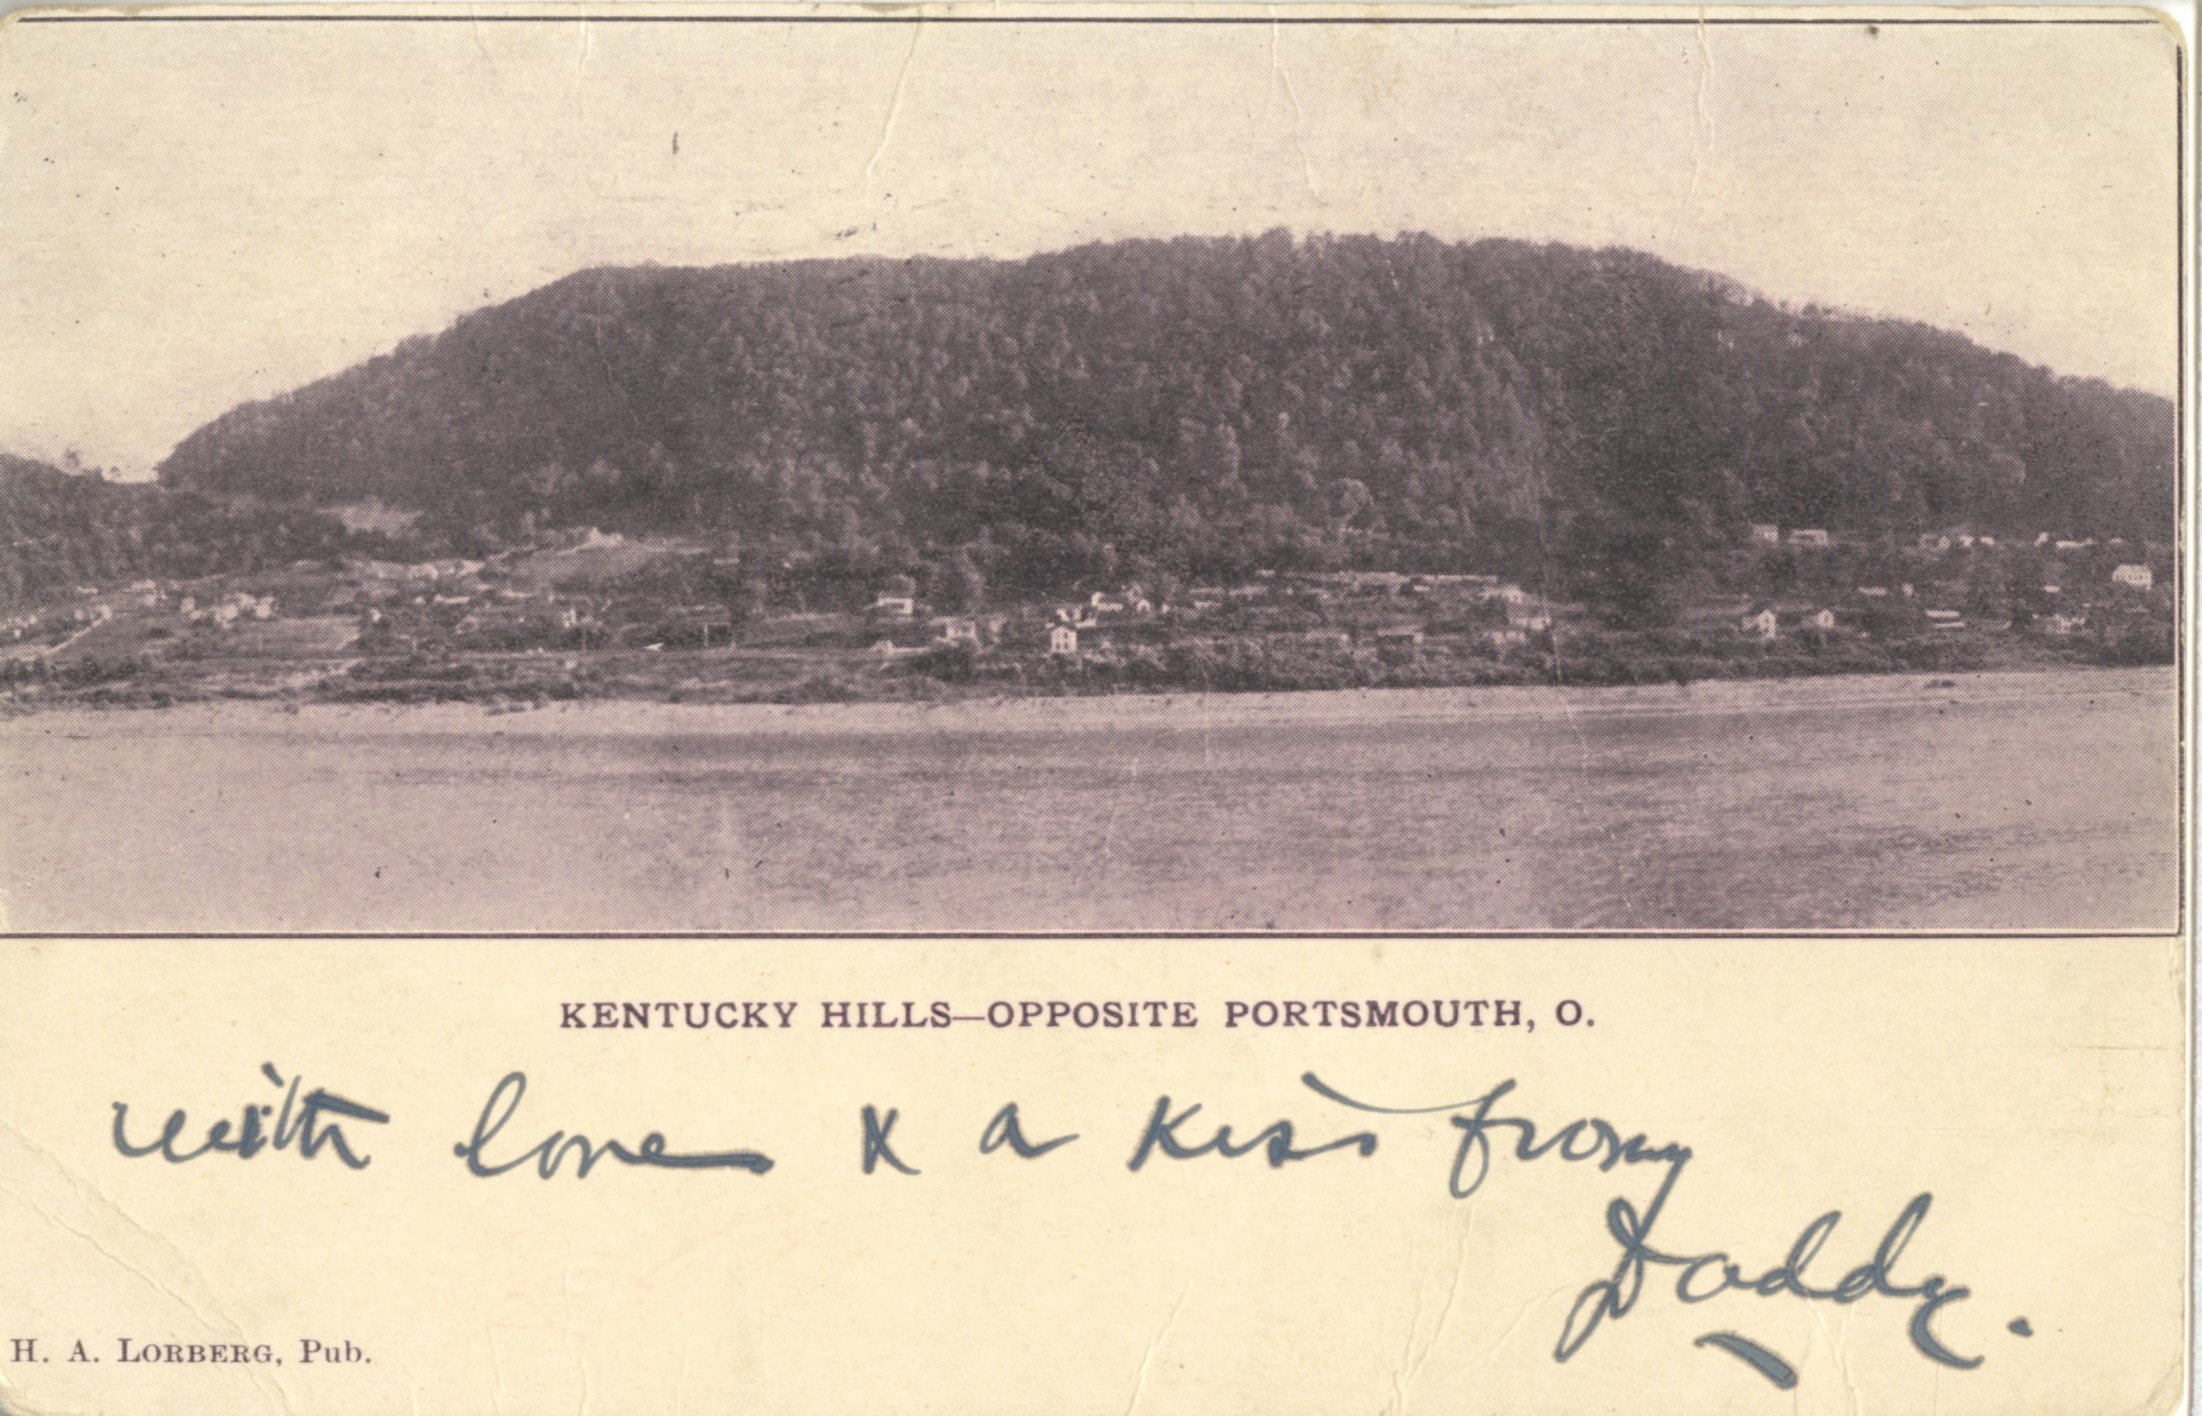 KENTUCKY HILLS—OPPOSITE PORTSMOUTH, O.
with love & a kiss from
Daddy.
H. A. LORBERG, Pub.